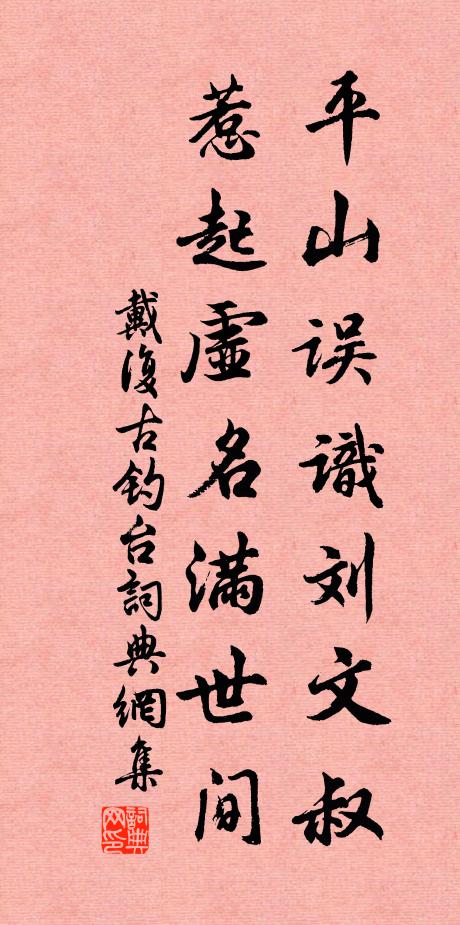 平山误識刘文叔
惹起虚名满世间
戴復古钓台詞典網集
詞典网印